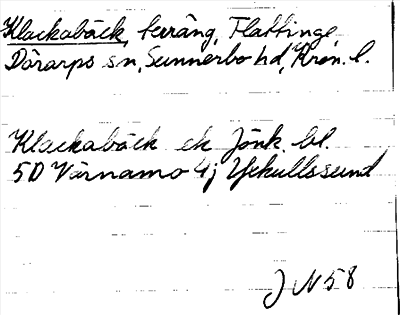 Klackabäck, terräng, Flattinge,
Dörarps sn, Sunnerbo hd, Kron. l.
Klackabäck ek Jönk. bl.
5D Värnamo 4j Yxkullssund
J N 58